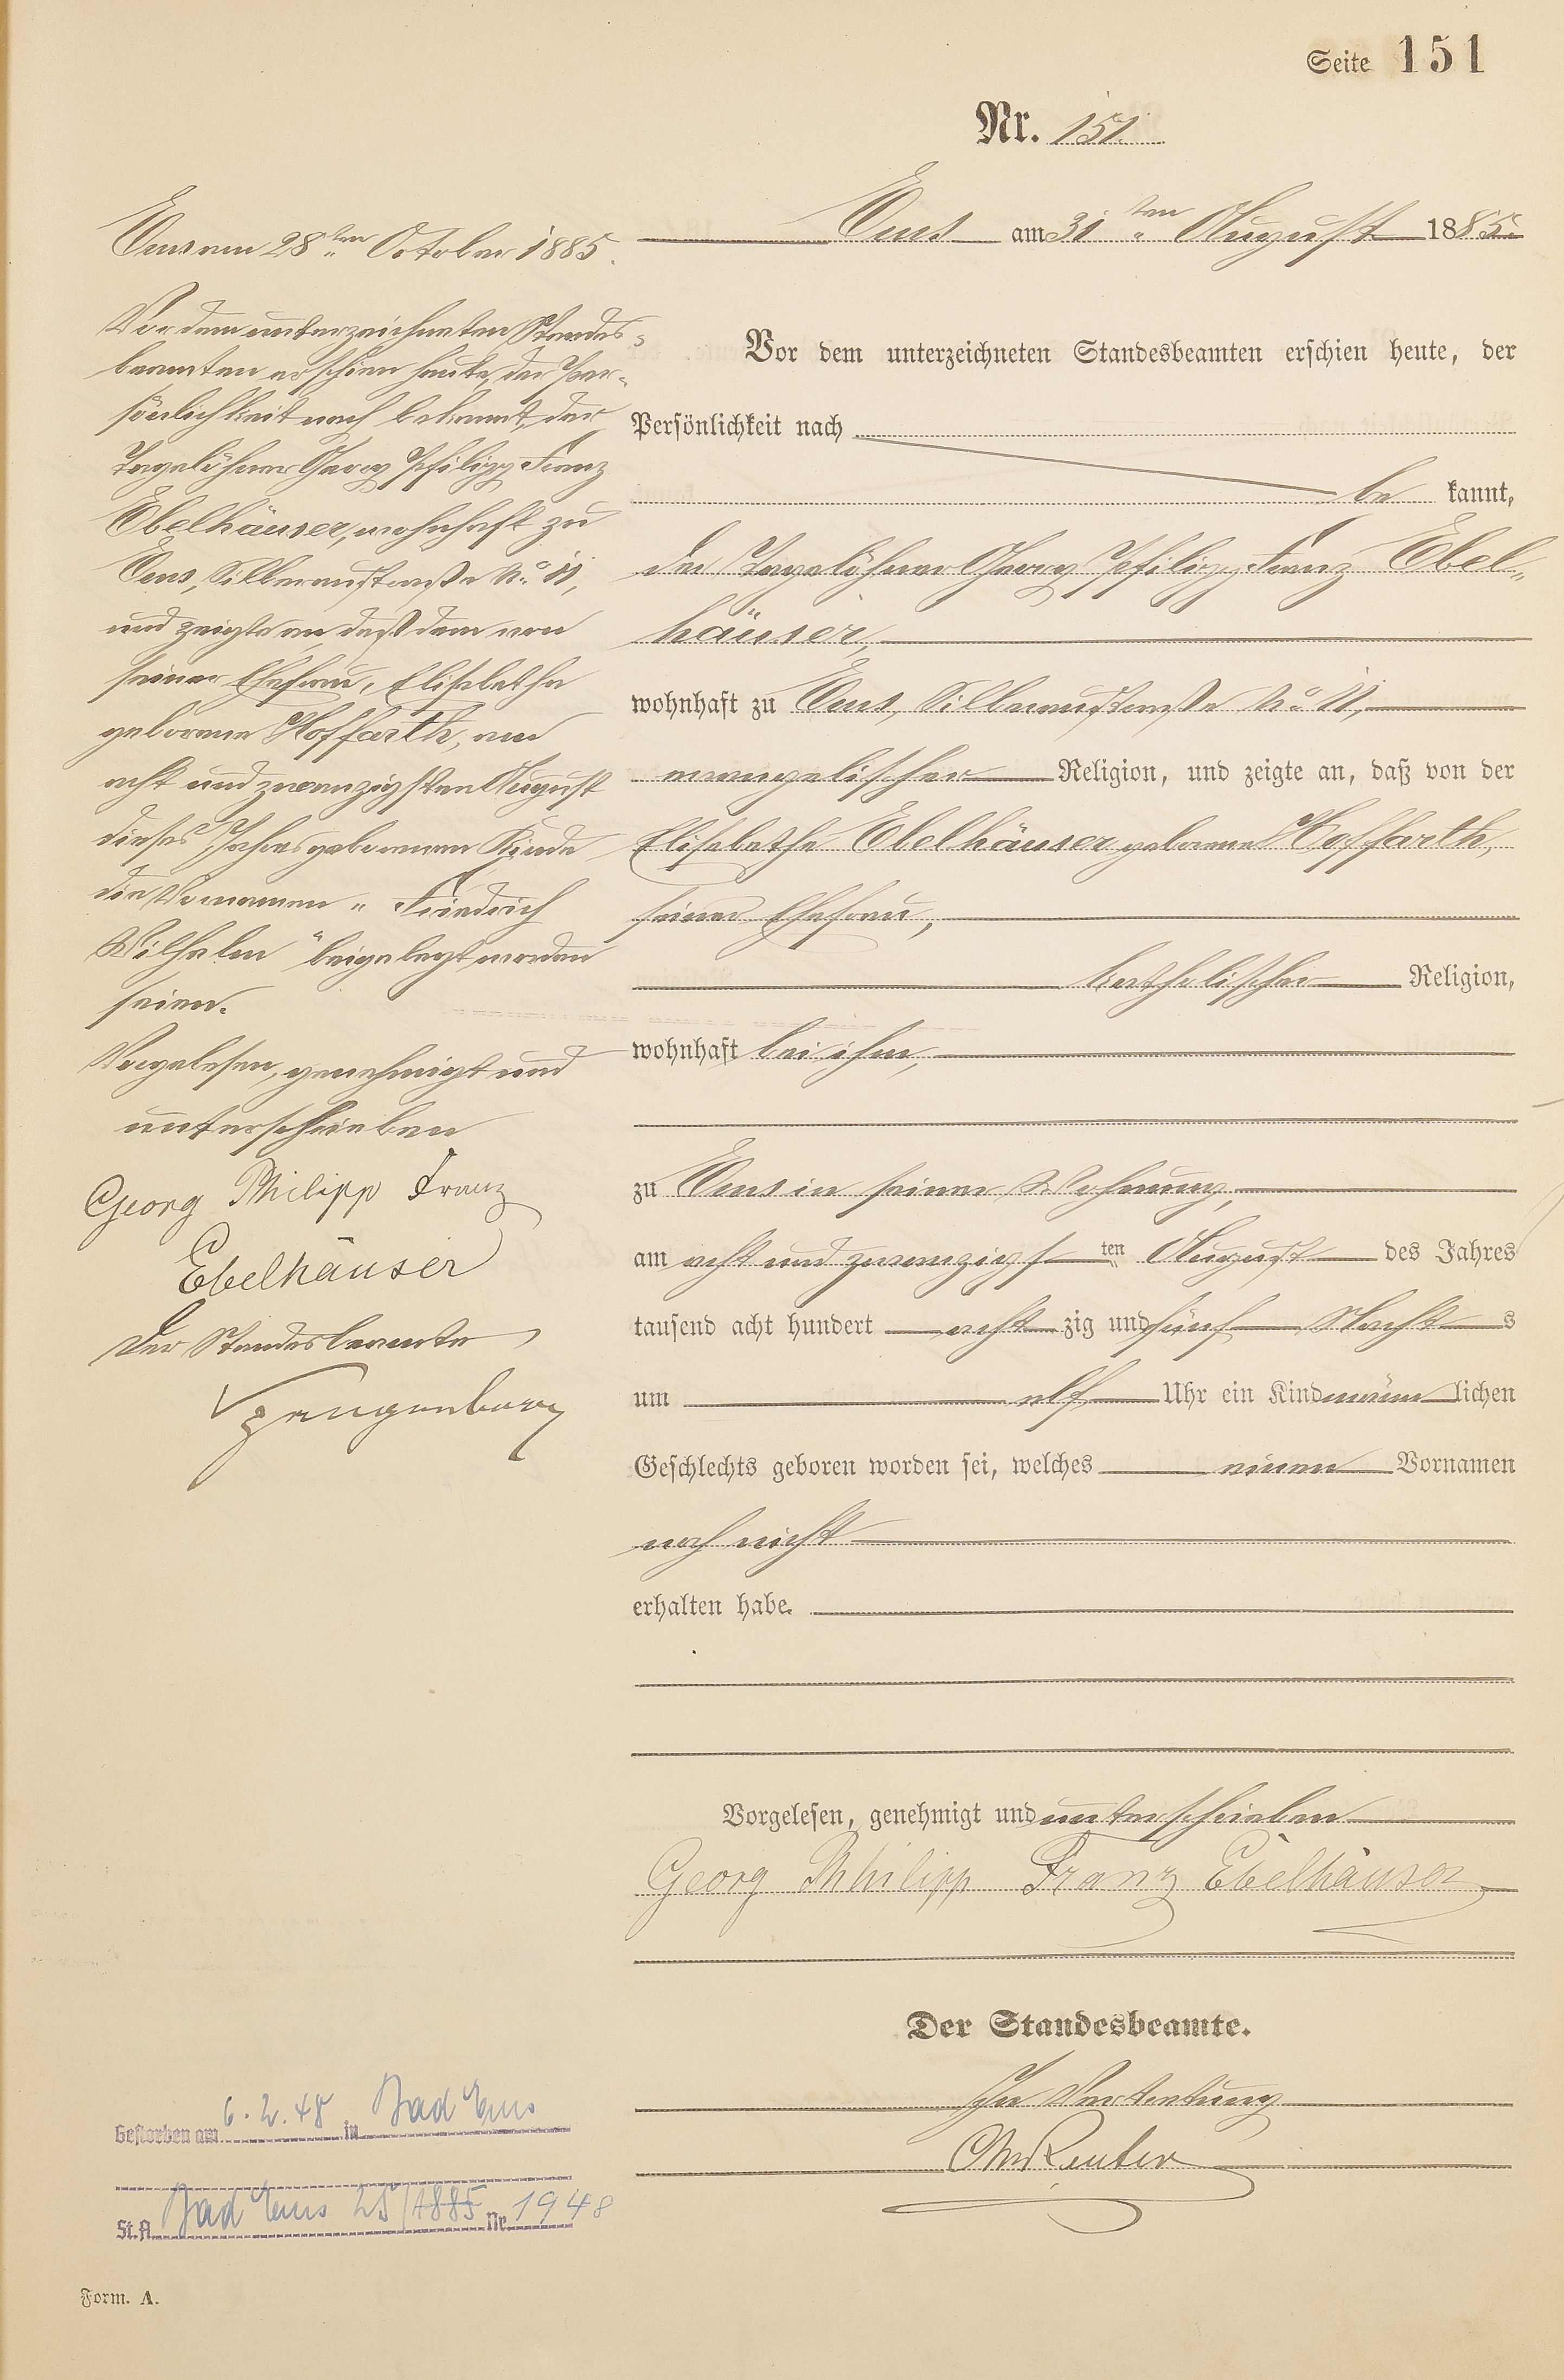 Seite 151
Nr. 151.
Ems am 31ten August 1885.
Vor dem unterzeichneten Standesbeamten erschien heute, der
Persönlichkeit nach
be kannt,
der Tagelöhner Georg Philipp Franz Ebel-
häuser,
wohnhaft zu Ems, Silberaustraße No 11,
evangelischer Religion, und zeigte an, daß von der
Elisabetha Ebelhäuser geborene Hoffarth,
seiner Ehefrau,
katholischer Religion,
wohnhaft bei ihm,
zu Ems in seiner Wohnung,
am acht und zwanzigsten August des Jahres
tausend acht hundert acht zig und fünf Nachts
um elf Uhr ein Kind männlichen
Geschlechts geboren worden sei, welches einen Vornamen
noch nicht
erhalten habe.
Vorgelesen, genehmigt und unterschrieben
Georg Phhilipp Franz Ebelhäuser
Der Standesbeamte.
In Vertretung
Reuter
Ems am 28ten October 1885.
Vor dem unterzeichneten Standes-
beamten erschien heute, der Per-
sönlichkeit nach bekannt, der
Tagelöhner Georg Philipp Franz
Ebelhäuser, wohnhaft zu
Ems, Silberaustraße No 11,
und zeigte an, daß dem von
seiner Ehefrau, Elisabetha
geborene Hoffarth, am
acht und zwanzigsten August
dieses Jahres geborenen Kinde
die Vornamen „Friedrich
Wilhelm" beigelegt worden
seien.
Vorgelesen, genehmigt und
unterschrieben
Georg Philipp Franz
Ebelhäuser
Der Standesbeamte
Spangenberg
Gestorben am 6.2.48 in Bad Ems
St.A. Bad Ems 25/1885 Nr. 1948
Form. A.